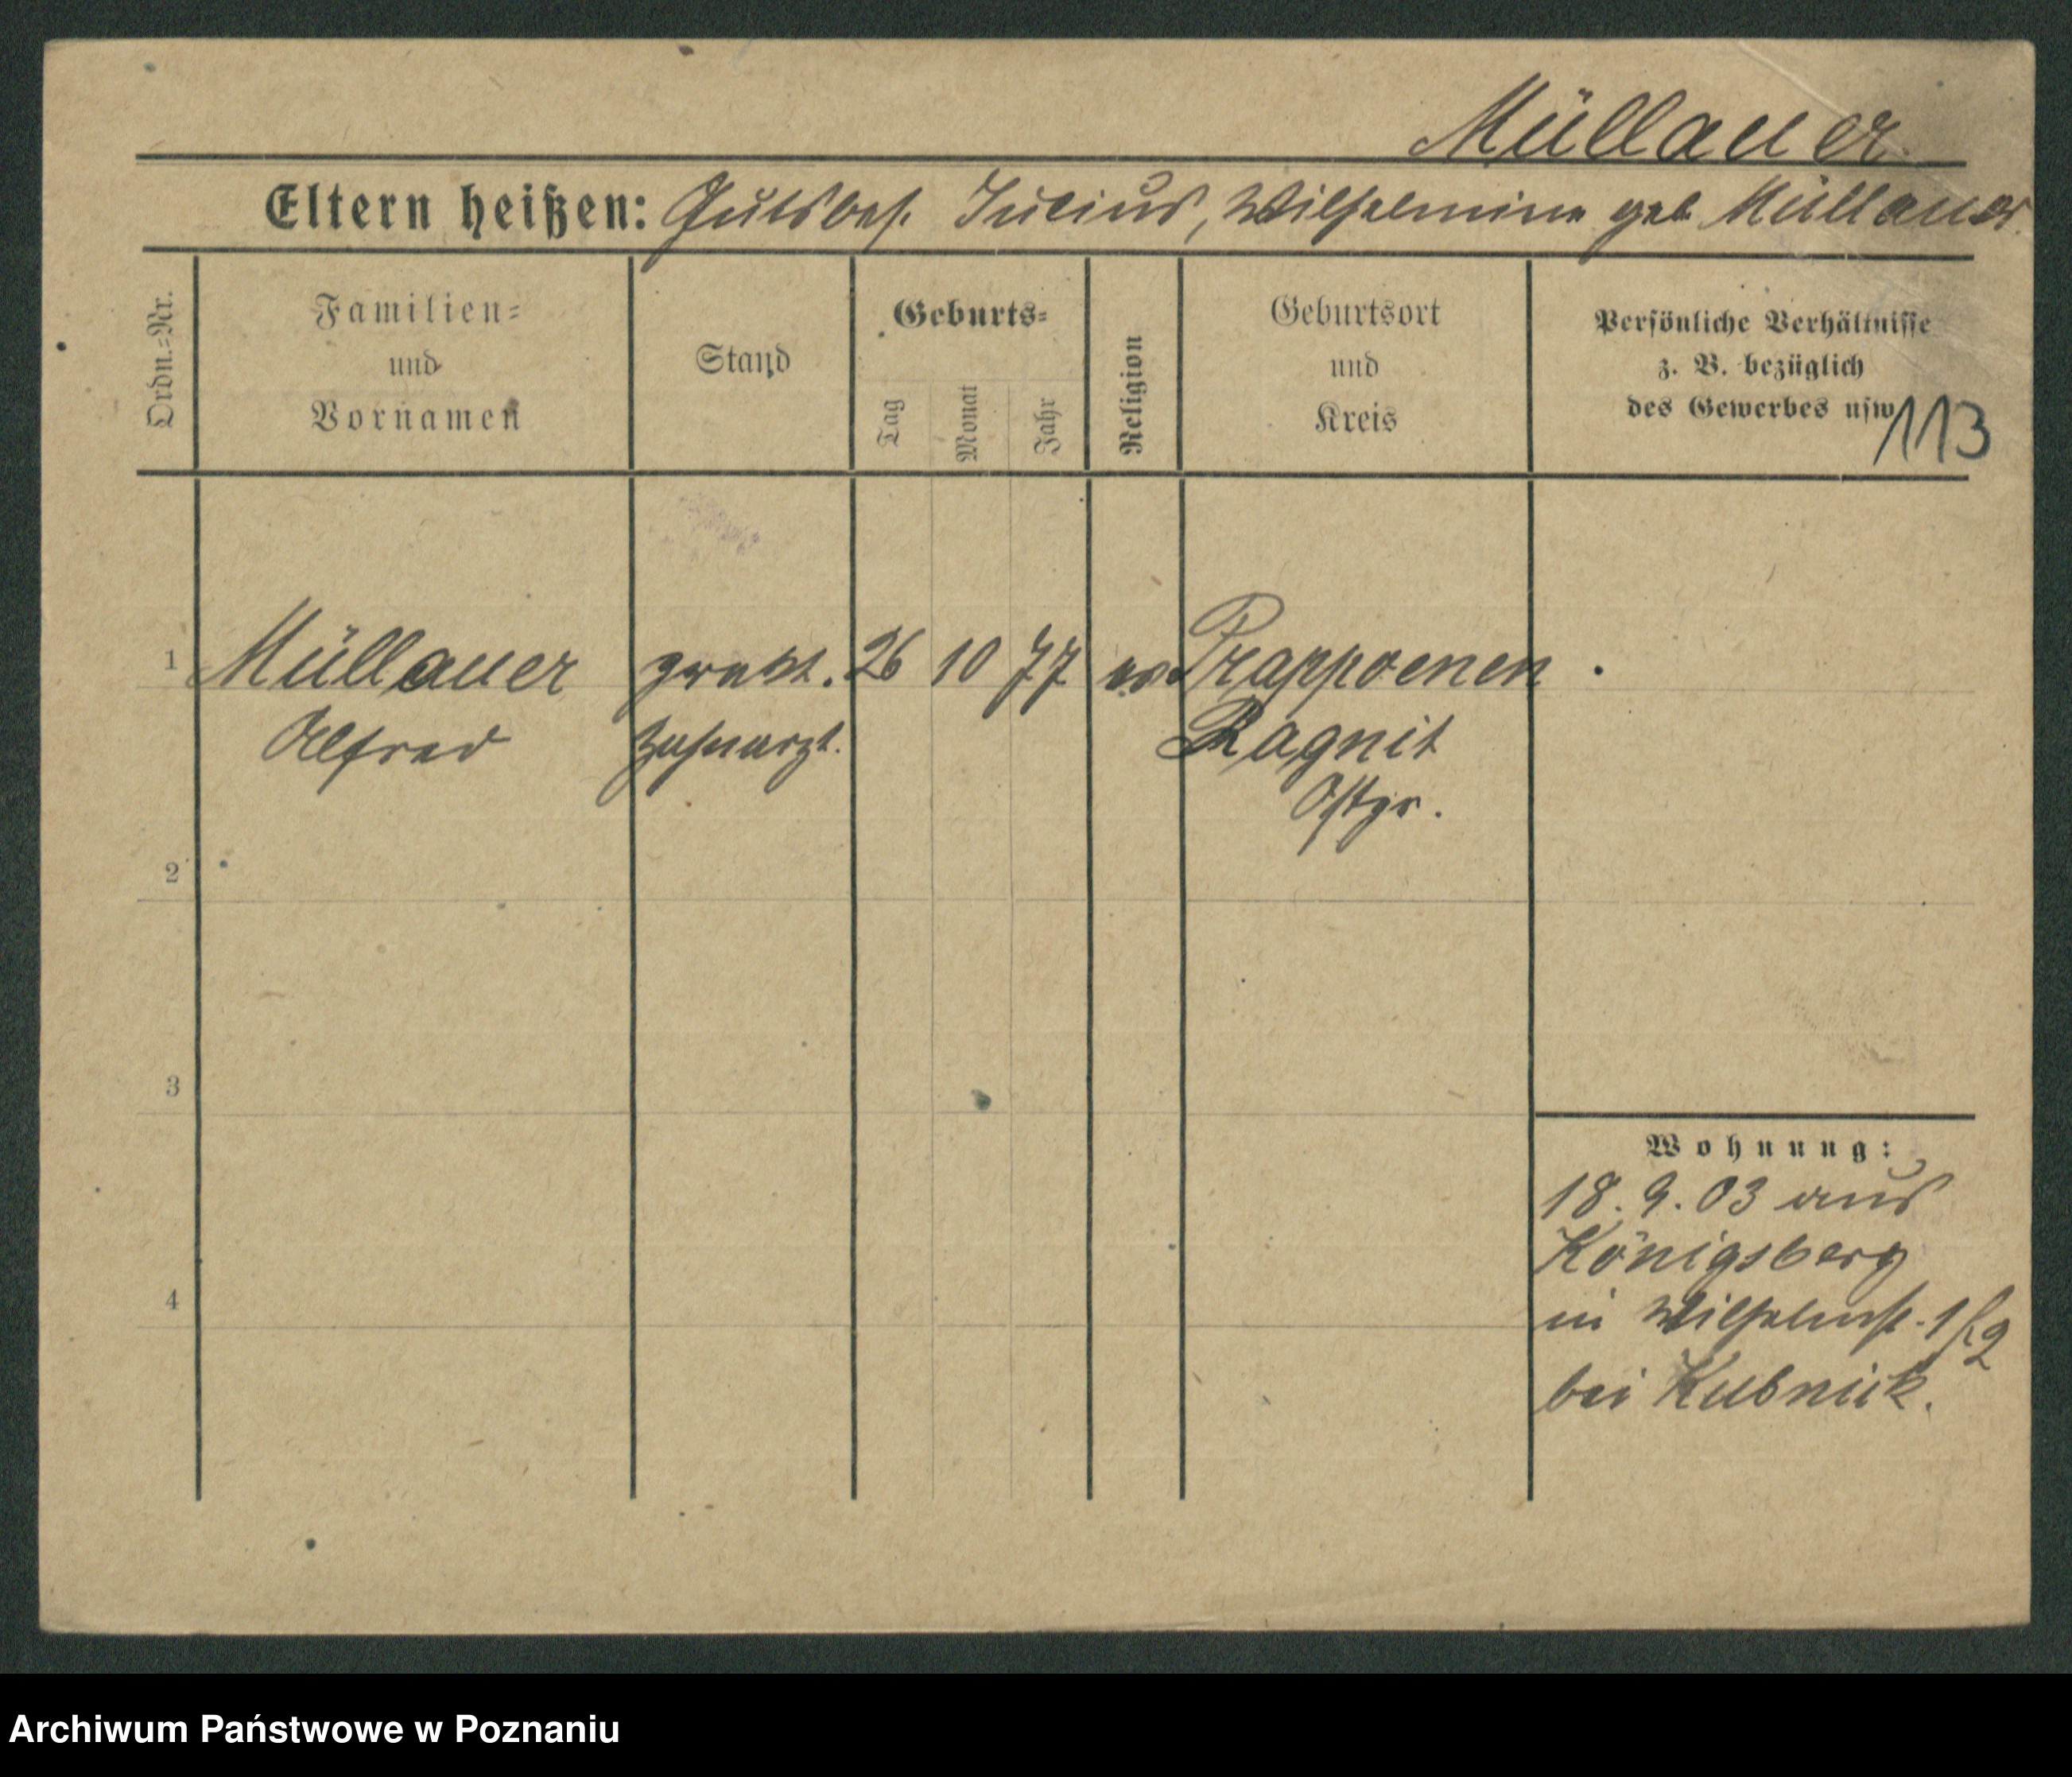 Müllauer
Eltern heißen: Gutsbes. Julius, Wilhelmine geb. Müllauer.
Ordn.=Nr.
Familien=
und
Vornamen
Stand
Geburts=
Tag
Monat
Jahr
Religion
Geburtsort
und
Kreis
Persönliche Verhältnisse
z. B. bezüglich
des Gewerbes usw.
113
1 Müllauer prakt. 26 10 77 ev. Trappoenen
Alfred Zahnarzt. Ragnit
Ostpr.
2
3
4
Wohnung:
18. 9. 03 aus
Königsberg
in Wilhelmst. 1/2
bei Kubnick.
Archiwum Państwowe w Poznaniu